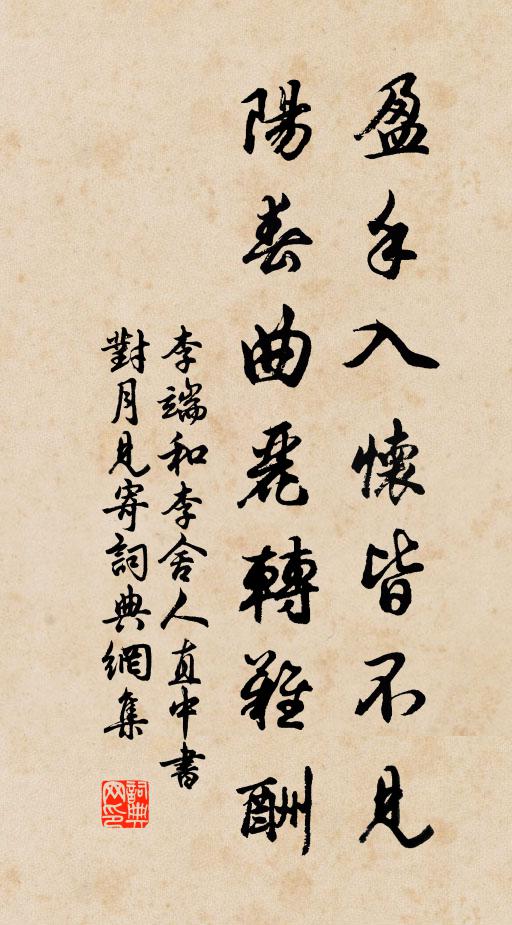 盈手入懷皆不見
陽春曲麗轉難酬
李端和李舍人直中書
對月見寄詞典網集
詞典網印